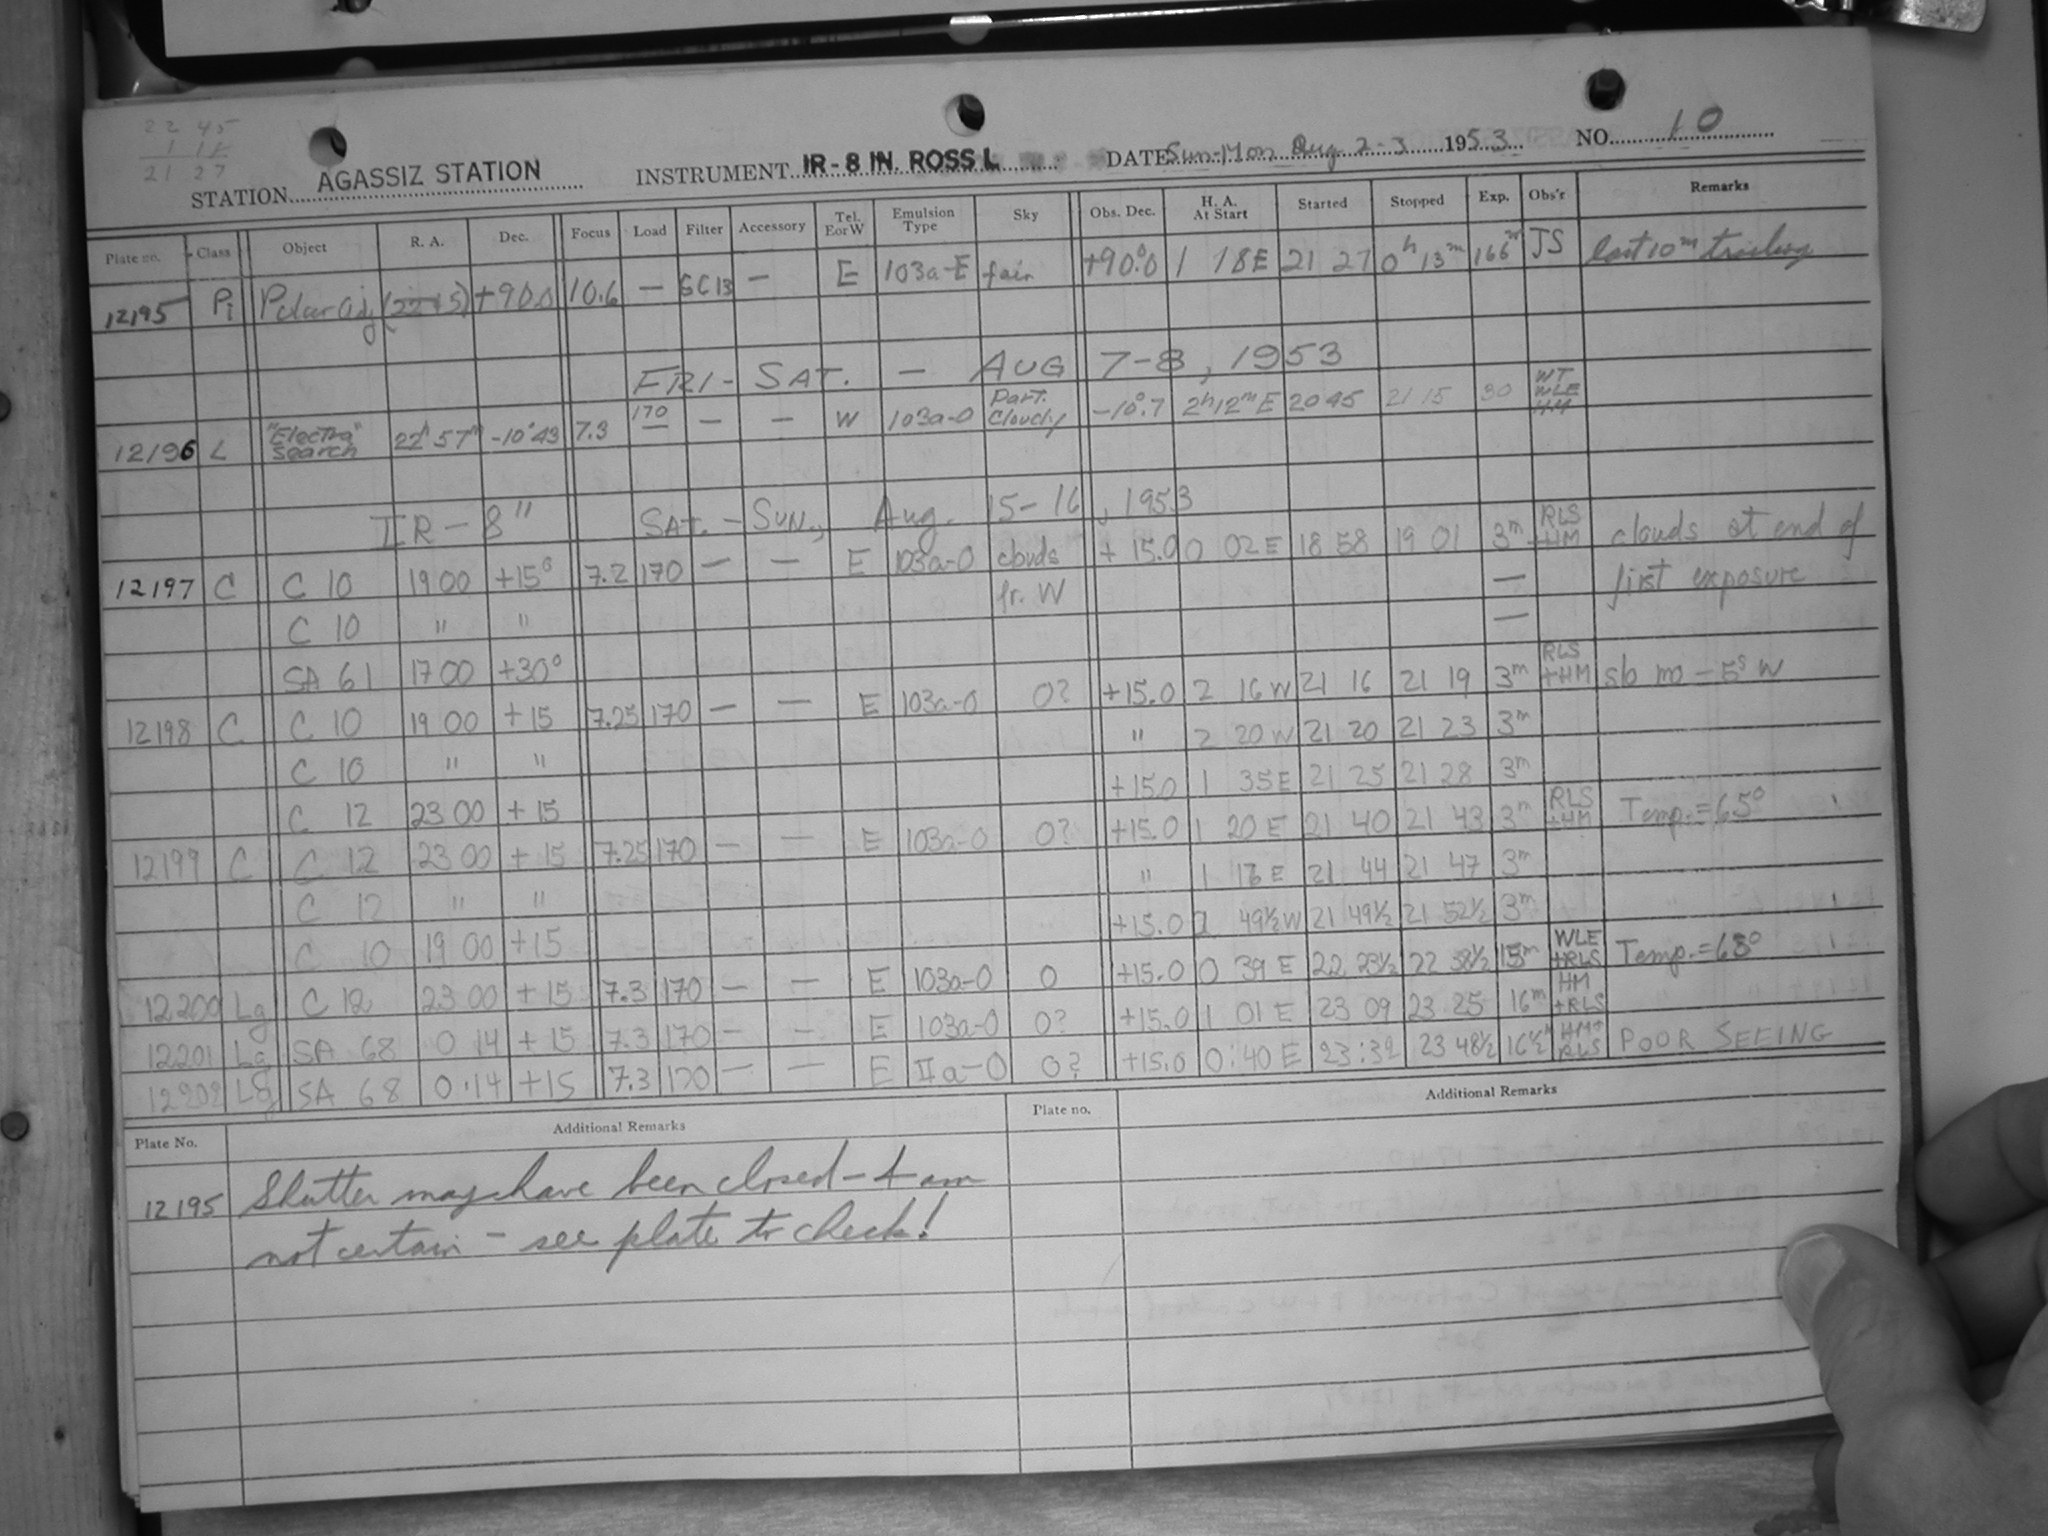 22 45
1 18
21 27
STATION AGASSIZ STATION INSTRUMENT IR-8 IN. ROSS L DATE Sun-Mon Aug 2-3 1953 NO. 10
Plate no. Class Object R. A. Dec. Focus Load Filter Accessory Tel. E or W Emulsion Type Sky Obs. Dec. H. A. At Start Started Stopped Exp. Obs'r Remarks
12195 Pi Polar adj (22 45) +90.0 10.6 — GC13 — E 103a-E fair +90.0 1 18E 21 27 0h 13m 166m JS last 10m trailing
FRI-SAT. — AUG 7-8, 1953
12196 L "Electra" Search 22h 57m -10°43 7.3 170 — — W 103a-O Part. Cloudy -10°.7 2h12mE 20 45 21 15 30 WT WLE HM
IR-8" SAT.-SUN., Aug. 15-16, 1953
12197 C C 10 19 00 +15° 7.2 170 — — E 103a-O clouds fr. W +15.0 0 02 E 18 58 19 01 3m RLS +HM clouds at end of
C 10 " " — first exposure
SA 61 17 00 +30° —
12198 C C 10 19 00 +15 7.25 170 — — E 103a-O 0? +15.0 2 16 W 21 16 21 19 3m RLS +HM slo mo - 5s W
C 10 " " " 2 20 W 21 20 21 23 3m
C 12 23 00 +15 +15.0 1 35 E 21 25 21 28 3m
12199 C C 12 23 00 +15 7.25 170 — — E 103a-O 0? +15.0 1 20 E 21 40 21 43 3m RLS +HM Temp.=65°
C 12 " " " 1 16 E 21 44 21 47 3m
C 10 19 00 +15 +15.0 2 49½ W 21 49½ 21 52½ 3m
12200 Lg C 12 23 00 +15 7.3 170 — — E 103a-O 0 +15.0 0 39 E 22 23½ 22 38½ 15m WLE +RLS Temp.=63°
12201 Lg SA 68 0 14 +15 7.3 170 — — E 103a-O 0? +15.0 1 01 E 23 09 23 25 16m HM +RLS
12202 Lg SA 68 0:14 +15 7.3 170 — — E IIa-O 0? +15.0 0:40 E 23:32 23 48½ 16½m HM+ RLS POOR SEEING
Plate No. Additional Remarks Plate no. Additional Remarks
12195 Shutter may have been closed - I am
not certain - see plate to check!